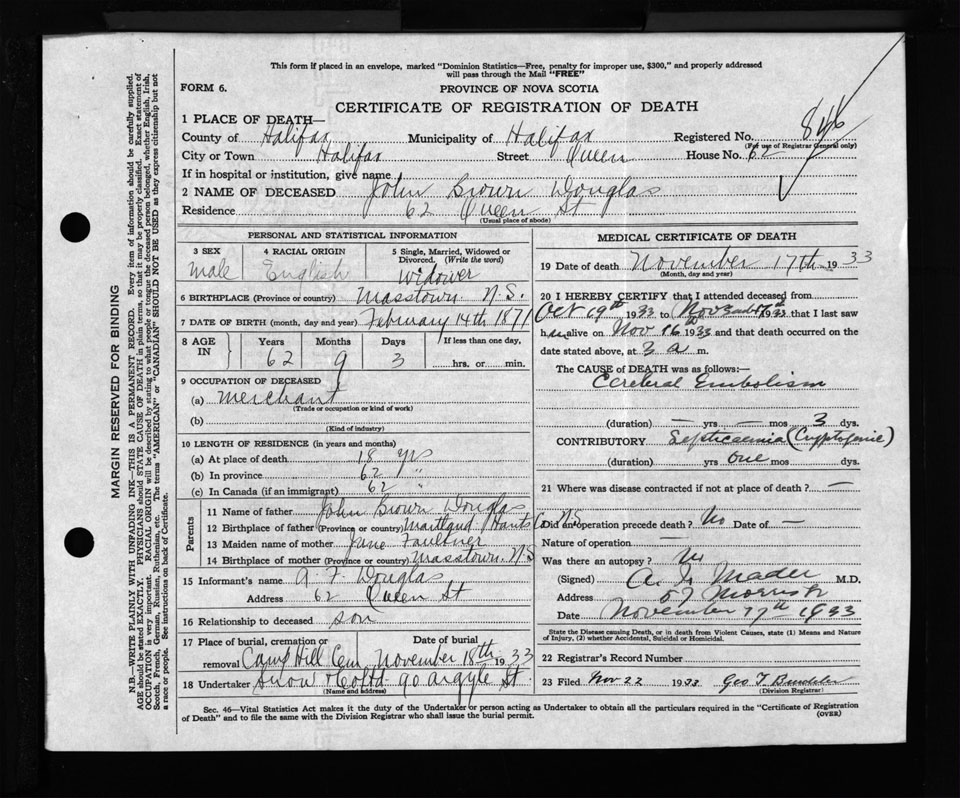 This form if placed in an envelope, marked "Dominion Statistics—Free, penalty for improper use, $300," and properly addressed
will pass through the Mail "FREE"
FORM 6.
PROVINCE OF NOVA SCOTIA
CERTIFICATE OF REGISTRATION OF DEATH
1 PLACE OF DEATH—
County of Halifax Municipality of Halifax Registered No. 846
(For use of Registrar General only)
City or Town Halifax Street Queen House No. 62
If in hospital or institution, give name
2 NAME OF DECEASED John Brown Douglas
Residence 62 Queen St
(Usual place of abode)
PERSONAL AND STATISTICAL INFORMATION
3 SEX 4 RACIAL ORIGIN 5 Single, Married, Widowed or
Divorced, (Write the word)
Male English Widower
6 BIRTHPLACE (Province or country) Masstown N.S.
7 DATE OF BIRTH (month, day and year) February 14th 1871
8 AGE IN Years Months Days If less than one day,
62 9 3 hrs. or min.
9 OCCUPATION OF DECEASED
(a) Merchant
(Trade or occupation or kind of work)
(b)
(Kind of industry)
10 LENGTH OF RESIDENCE (in years and months)
(a) At place of death 18 yrs
(b) In province 62 "
(c) In Canada (if an immigrant) 62 "
Parents
11 Name of father John Brown Douglas
12 Birthplace of father (Province or country) Maitland Hants Co. N.S.
13 Maiden name of mother Jane Faulkner
14 Birthplace of mother (Province or country) Masstown, N.S
15 Informant's name A. F. Douglas
Address 62 Queen St
16 Relationship to deceased son
17 Place of burial, cremation or Date of burial
removal Camp Hill Cem. November 18th 1933
18 Undertaker Snow & Co Ltd 90 Argyle St
(Name and address)
MEDICAL CERTIFICATE OF DEATH
19 Date of death November 17th 1933
(Month, day and year)
20 I HEREBY CERTIFY that I attended deceased from
Oct 19th 1933 to Nov 17th 1933 that I last saw
him alive on Nov 16th 1933 and that death occurred on the
date stated above, at 3 a m.
The CAUSE of DEATH was as follows:—
Cerebral Embolism
(duration) — yrs — mos 3 dys.
CONTRIBUTORY Septicaemia (Cryptogenic)
(duration) yrs one mos dys.
21 Where was disease contracted if not at place of death? —
Did an operation precede death? No Date of —
Nature of operation —
Was there an autopsy? No
(Signed) A. I. Mader M.D.
Address 57 Morris St
Date November 17th 1933
State the Disease causing Death, or in death from Violent Causes, state (1) Means and Nature
of Injury, (2) whether Accidental, Suicidal or Homicidal.
22 Registrar's Record Number
23 Filed Nov 22 1933 Geo T
(Division Registrar)
Sec. 46—Vital Statistics Act makes it the duty of the Undertaker or person acting as Undertaker to obtain all the particulars required in the "Certificate of Registration
of Death" and to file the same with the Division Registrar who shall issue the burial permit.
(OVER)
MARGIN RESERVED FOR BINDING
N.B.—WRITE PLAINLY WITH UNFADING INK—THIS IS A PERMANENT RECORD. Every item of information should be carefully supplied.
AGE should be stated EXACTLY. PHYSICIANS should STATE CAUSE OF DEATH in plain terms, so that it may be properly classified. Exact statement of
OCCUPATION is very important. RACIAL ORIGIN will be described by stating to what people or tongue the deceased person belonged, whether English, Irish,
Scotch, French, German, Russian, Ruthenian, etc. The terms "AMERICAN" or "CANADIAN" SHOULD NOT BE USED as they express citizenship but not
a race or people. See instructions on back of Certificate.